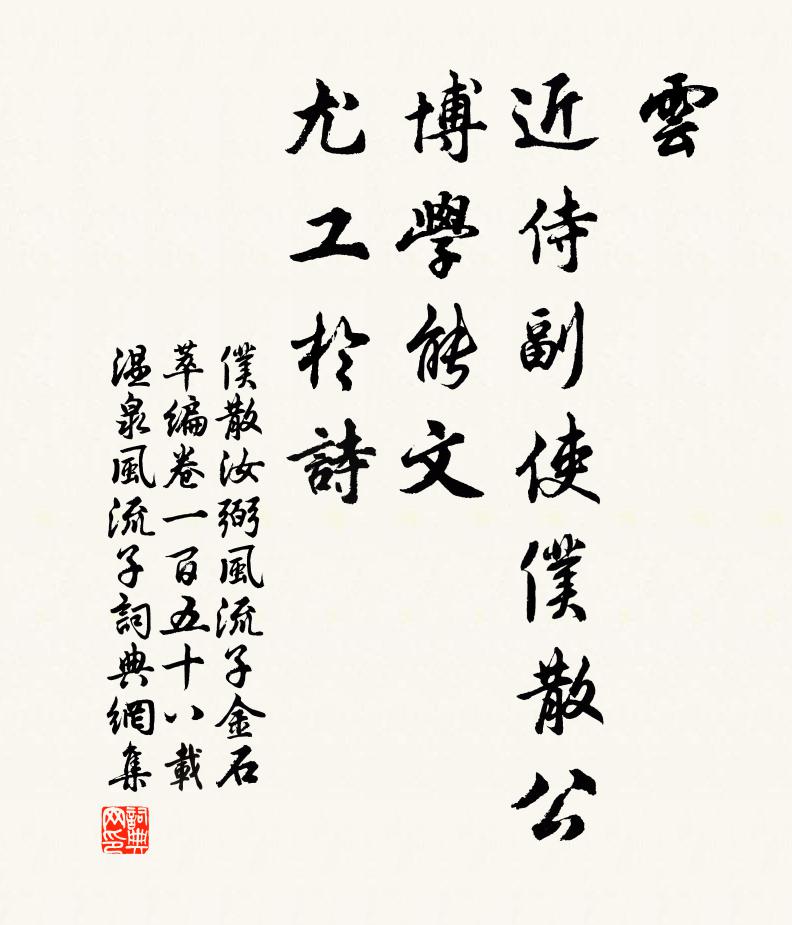 雲
近侍副使僕散公
博學能文
尤工於詩
僕散汝弼風流子金石
萃編卷一百五十八載
溫泉風流子詞典網集
詞典
网印